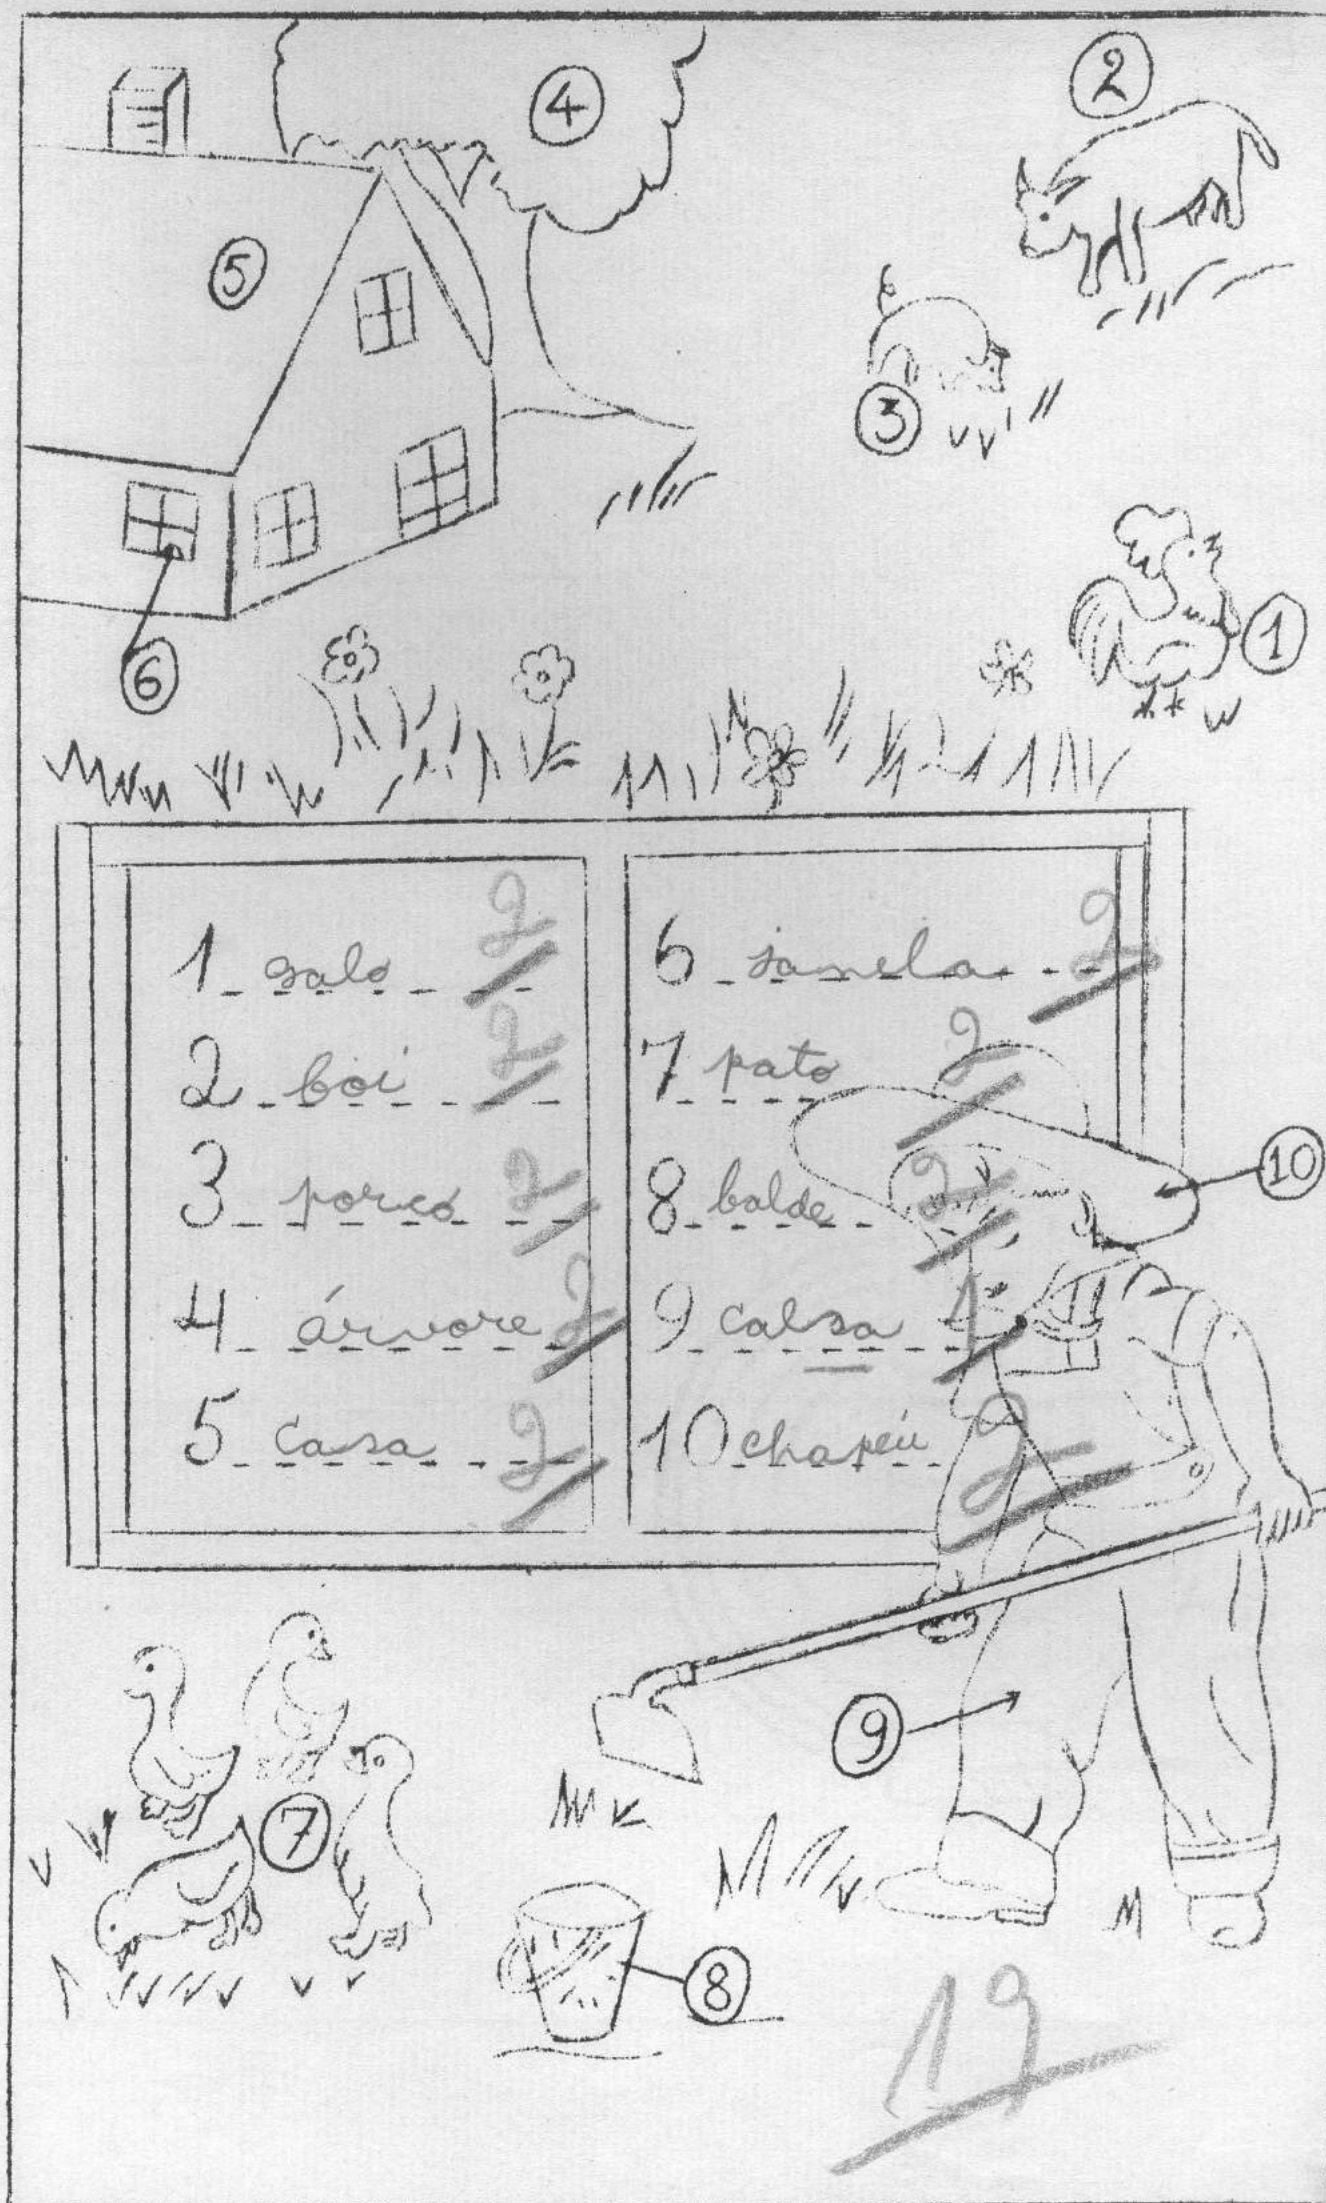 4
2
5
3
1
6
1 galo 2
2 boi 2
3 porco 2
4 árvore 2
5 casa 2
6 janela 2
7 pato 2
8 balde 2
9 calsa 1
10 chapéu 2
10
9
7
8
19